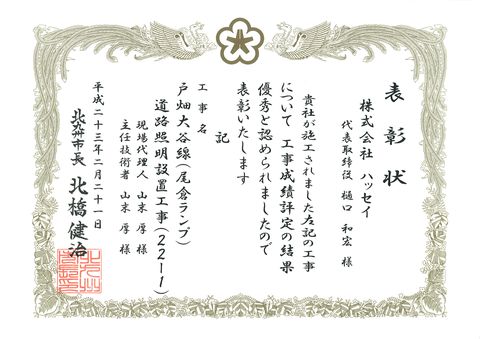 表彰状
株式会社 ハッセイ
代表取締役 樋口 和宏 様
貴社が施工されました左記の工事
について 工事成績評定の結果
優秀と認められましたので
表彰いたします
記
工事名
戸畑大谷線(尾倉ランプ)
道路照明設置工事(22-1)
現場代理人 山末 厚 様
主任技術者 山末 厚 様
平成二十三年二月二十一日
北九州市長 北橋健治